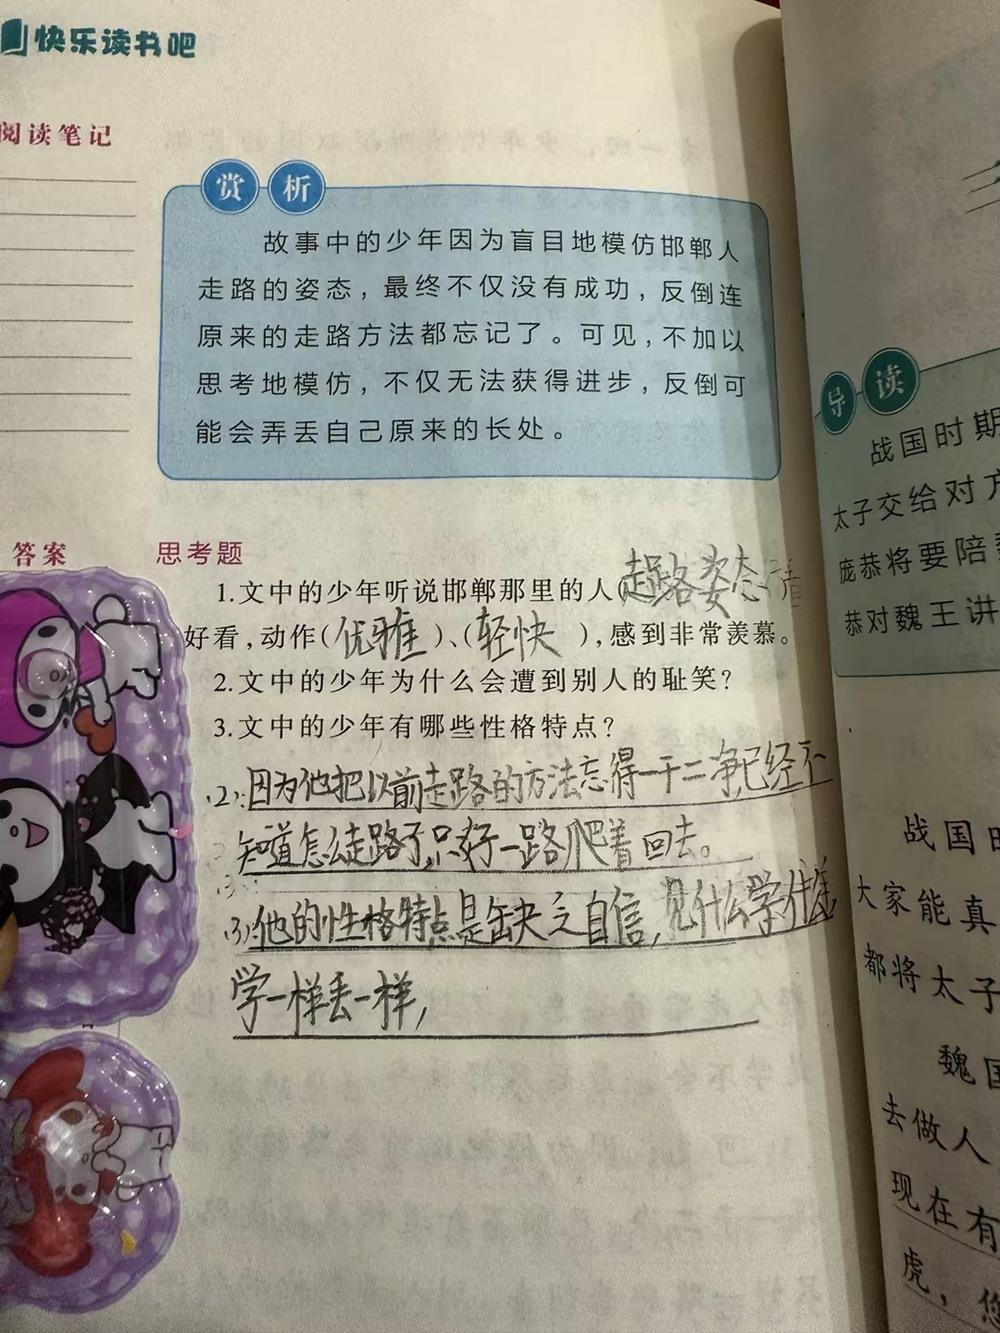 快乐读书吧
阅读笔记
赏析
故事中的少年因为盲目地模仿邯郸人
走路的姿态，最终不仅没有成功，反倒连
原来的走路方法都忘记了。可见，不加以
思考地模仿，不仅无法获得进步，反倒可
能会弄丢自己原来的长处。
答案
思考题
1.文中的少年听说邯郸那里的人(走路姿态)
好看，动作(优雅)、(轻快)，感到非常羡慕。
2.文中的少年为什么会遭到别人的耻笑？
3.文中的少年有哪些性格特点？
(2)因为他把以前走路的方法忘得一干二净,已经不
知道怎么走路了,只好一路爬着回去。
(3)他的性格特点是缺乏自信,见什么学什么
学一样丢一样,
导读
战国时期
太子交给对方
庞恭将要陪
恭对魏王讲
战国
大家能真
都将太子
魏国
去做人
现在有
虎，您